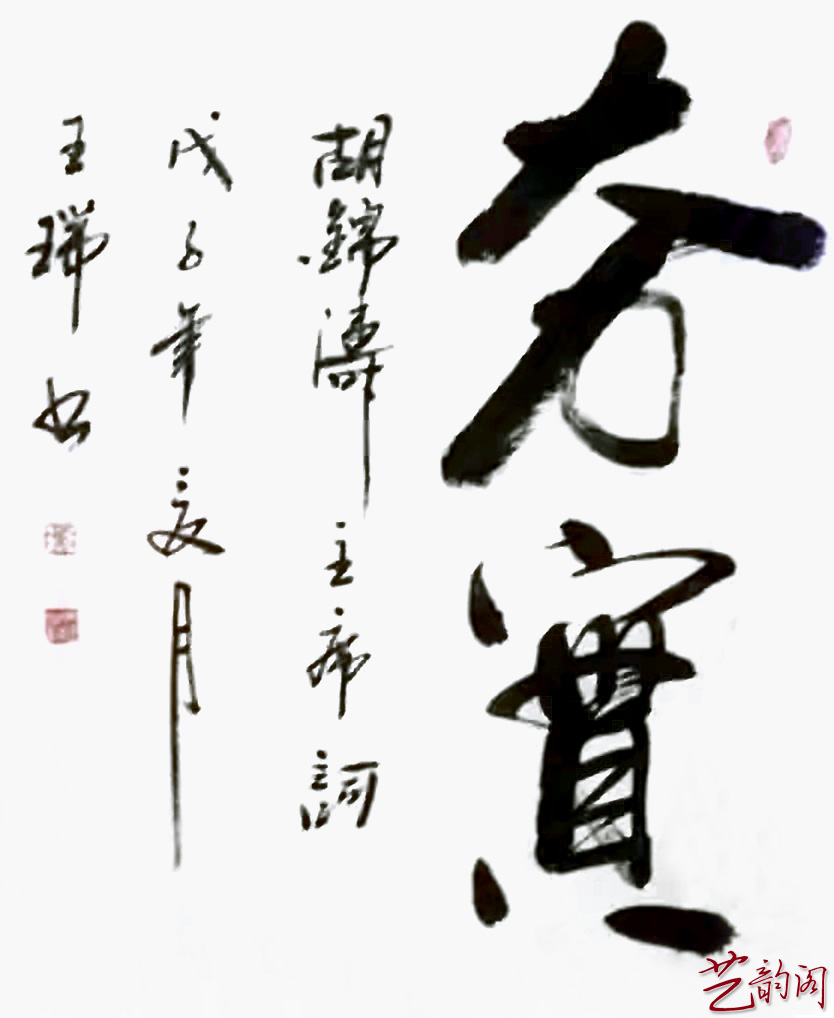 夯實
胡錦濤主席詞
戊子年夏月
王瑞书
艺韵阁